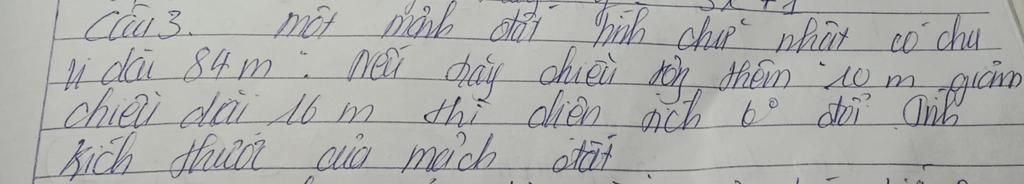 Câu 3. một mảnh đất hình chữ nhật có chu
vi dài 84 m. nếu tăng chiều rộng thêm 10 m giảm
chiều dài 16 m thì diện tích ko đổi tính
kích thước của mảnh đất